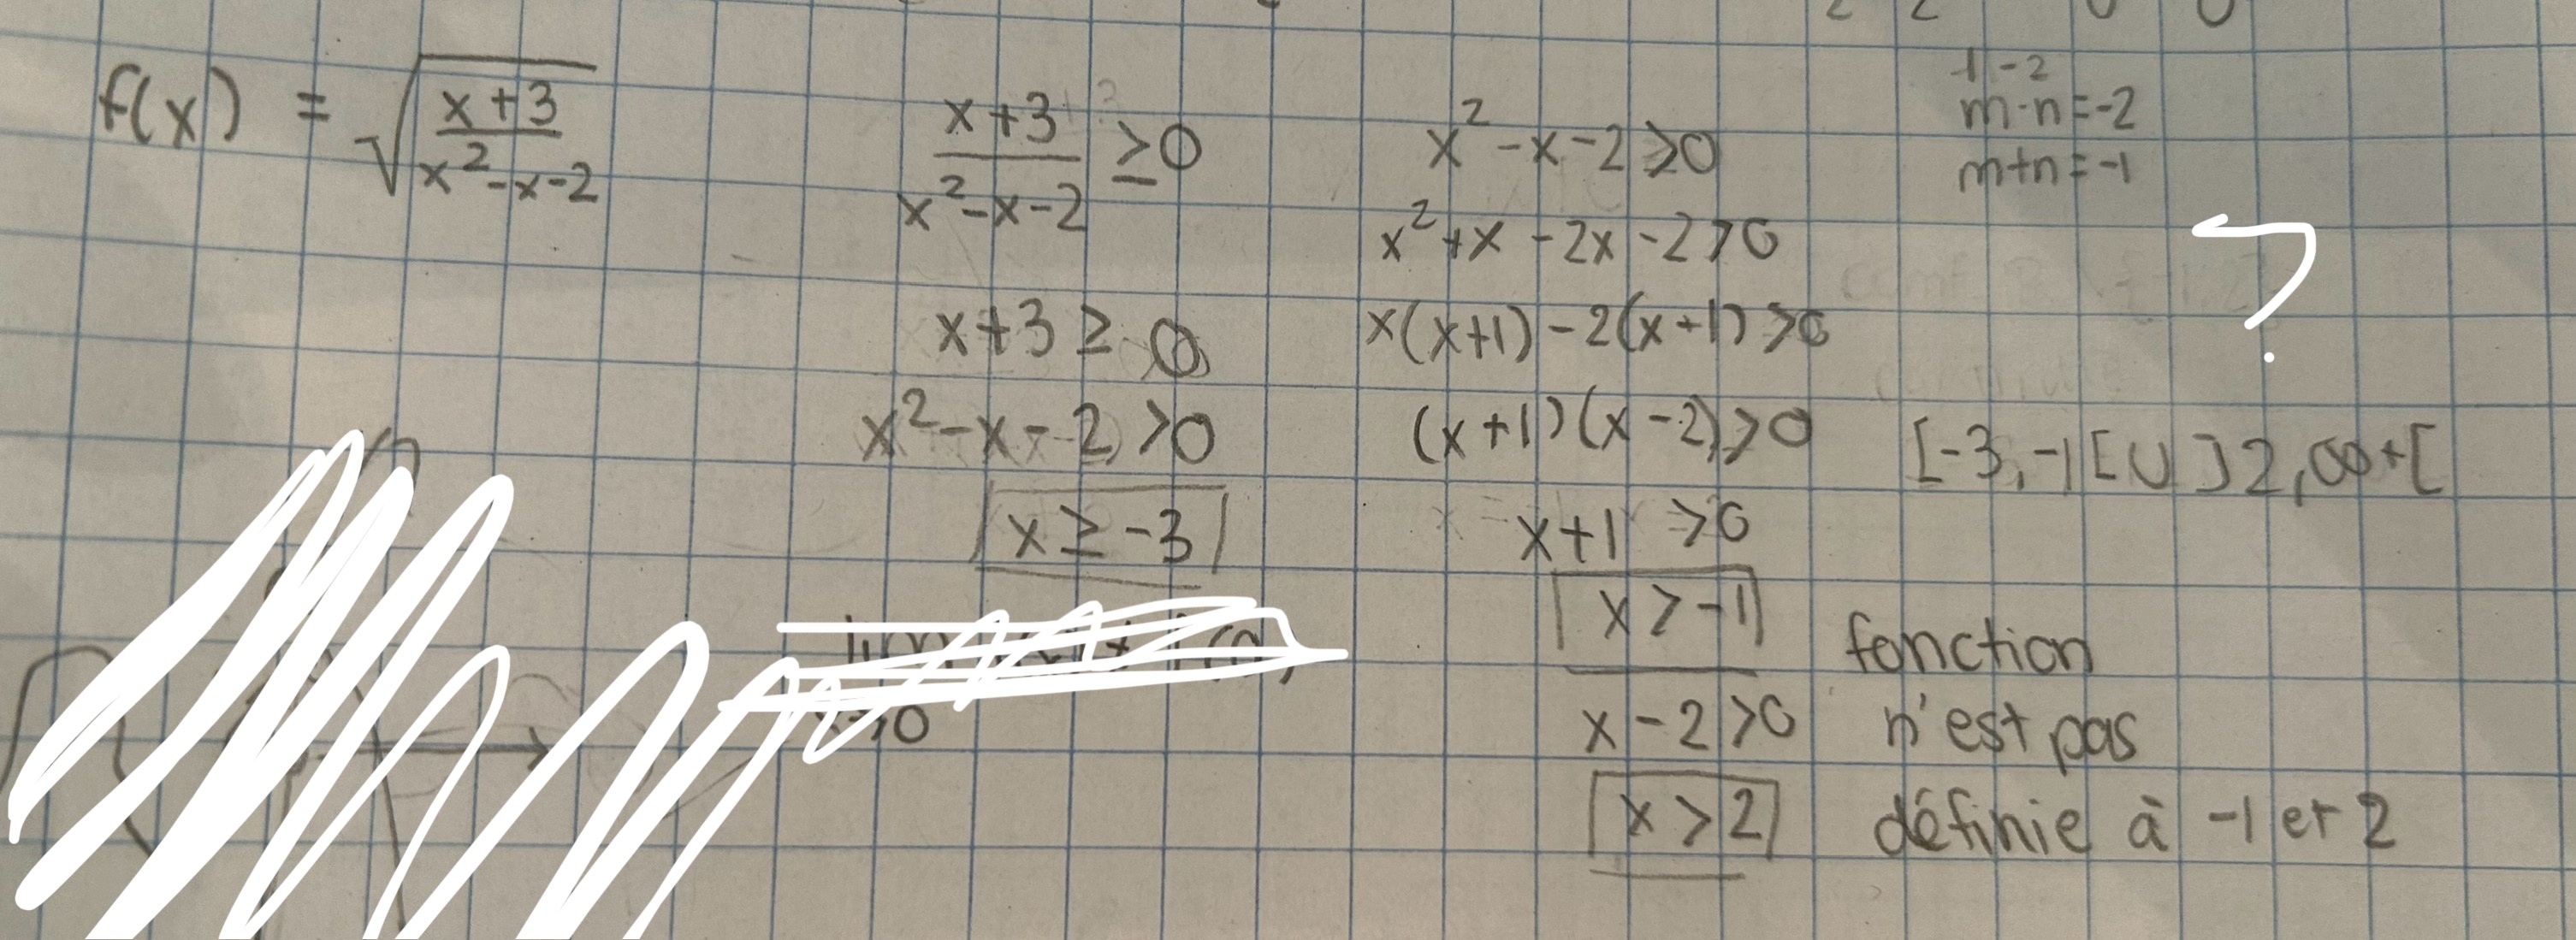 f(x) = √((x+3)/(x²-x-2))
(x+3)/(x²-x-2) ≥0
x+3 ≥ 0
x²-x-2 >0
x ≥ -3
x→0
x²-x-2 >0
x²+x-2x-2>0
x(x+1)-2(x+1)>0
(x+1)(x-2)>0
x+1 >0
x>-1
x-2>0
x>2
1-2
m·n=-2
m+n=-1
?
[-3,-1[U]2,∞+[
fonction
n'est pas
définie à -1 et 2